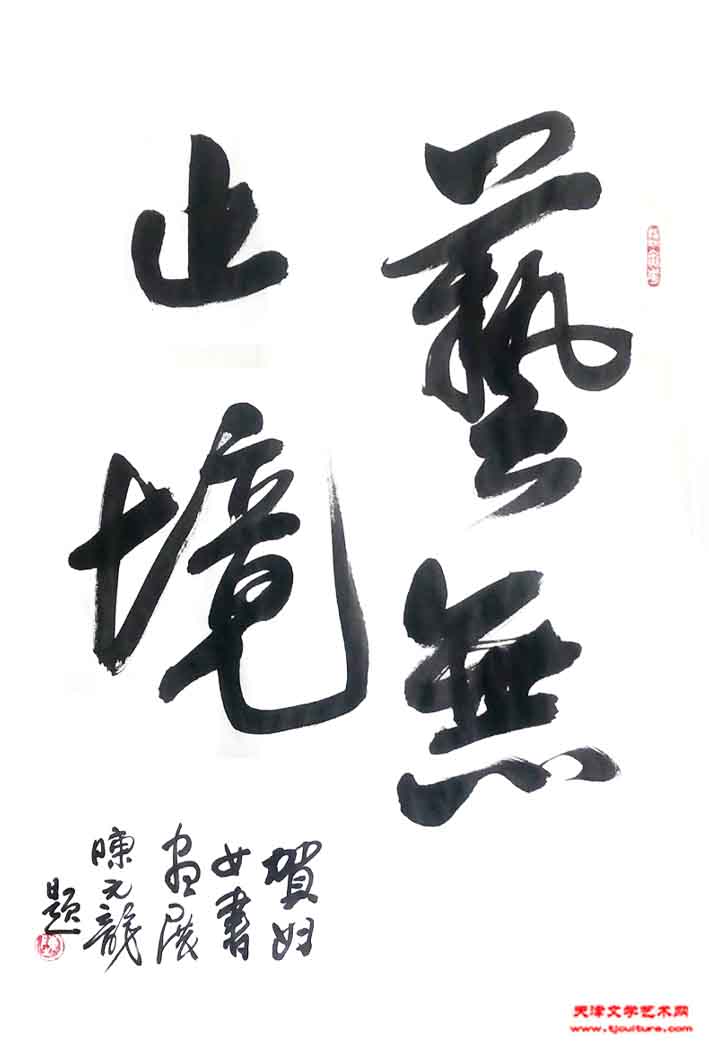 藝無
止境
賀妇
女書
畫展
陳元龍
題
天津文学艺术网
www.tjculture.com